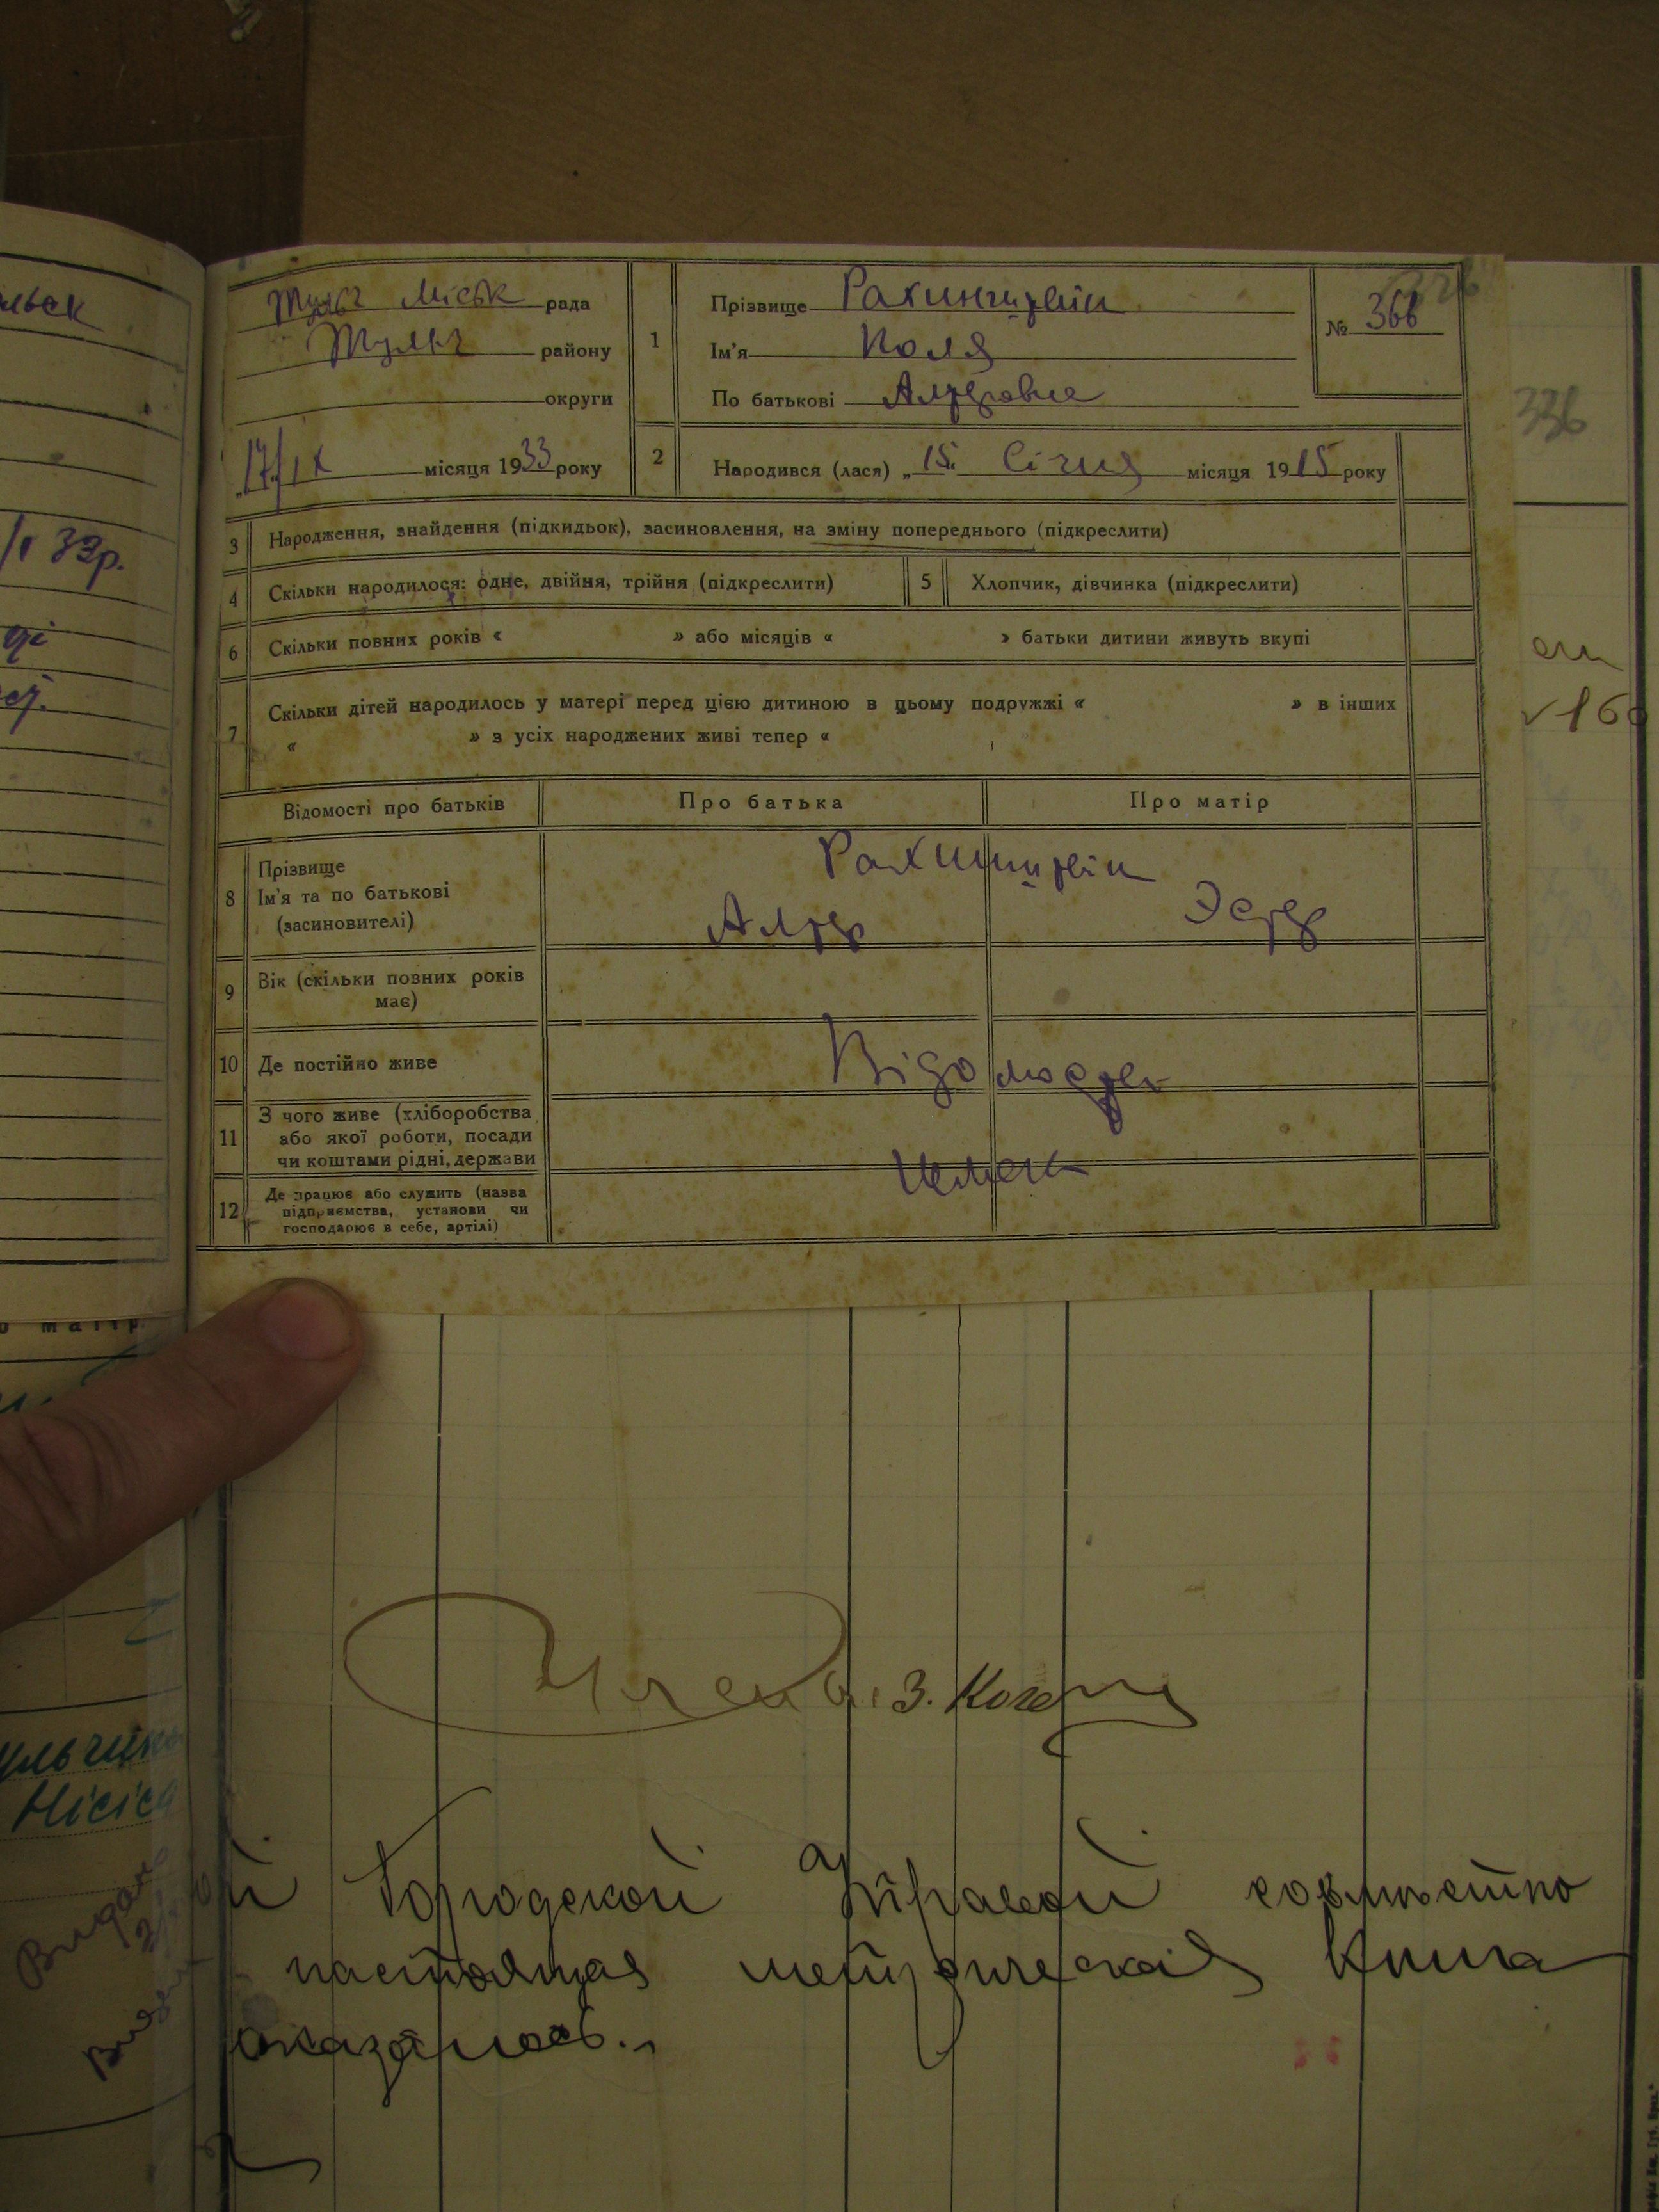 Тульч Міськ рада
Тульч району
округи
17/IX місяця 1933 року
1
Прізвище Рахинштейн
Ім'я Поля
По батькові Алтеровна
№ 366
336
2
Народився (лася) „15. Січня місяця 1915 року
3 Народження, знайдення (підкидьок), засиновлення, на зміну попереднього (підкреслити)
4 Скільки народилося: одне, двійня, трійня (підкреслити)
5 Хлопчик, дівчинка (підкреслити)
6 Скільки повних років « » або місяців « » батьки дитини живуть вкупі
7 Скільки дітей народилось у матері перед цією дитиною в цьому подружжі « » в інших
« » з усіх народжених живі тепер «
Відомості про батьків
Про батька
Про матір
8 Прізвище
Ім'я та по батькові
(засиновителі)
Алтер
Эстер
9 Вік (скільки повних років
має)
10 Де постійно живе
Відомостей
11 З чого живе (хліборобства
або якої роботи, посади
чи коштами рідні, держави
12 Де працює або служить (назва
підприємства, установи чи
господарює в себе, артілі)
Немає
З.
й Городской Управой совместно
настоящая метрическая Книга
оказалось.